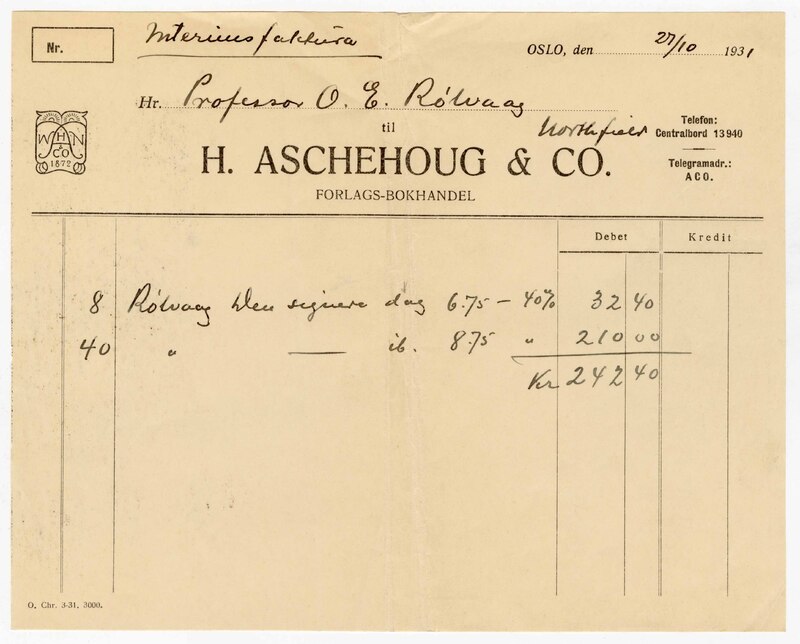 Nr.
Interimsfaktura
OSLO, den 27/10 1931
Hr. Professor O. E. Rölvaag
Northfield
til
H. ASCHEHOUG & CO.
FORLAGS-BOKHANDEL
Telefon:
Centralbord 13940
Telegramadr.:
ACO.
W H N
A
& CO
1872
Debet Kredit
8 Rölvaag Den signede dag 6.75 – 40% 32 40
40 " — ib. 8.75 " 210 00
Kr 242 40
O. Chr. 3-31. 3000.